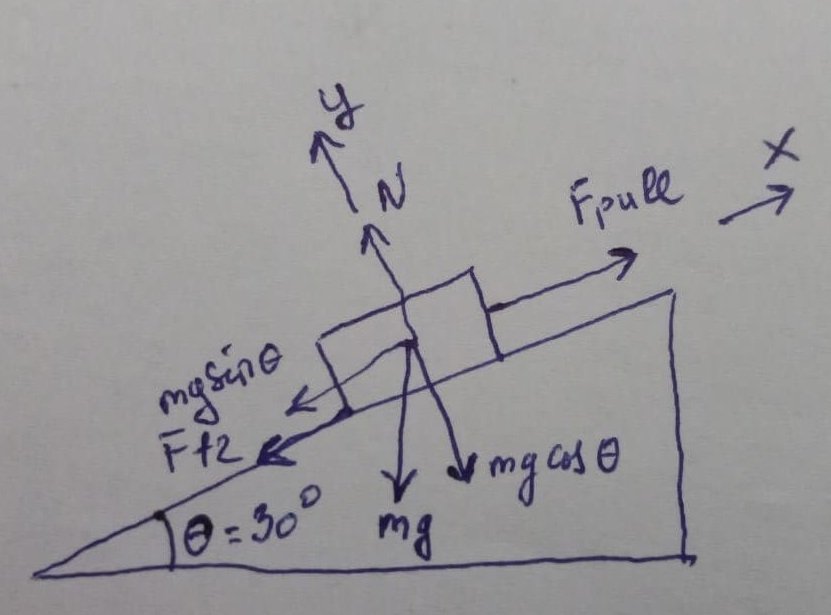 y
N
Fpull
X
mg sin θ
F fr
mg cos θ
θ = 30°
mg